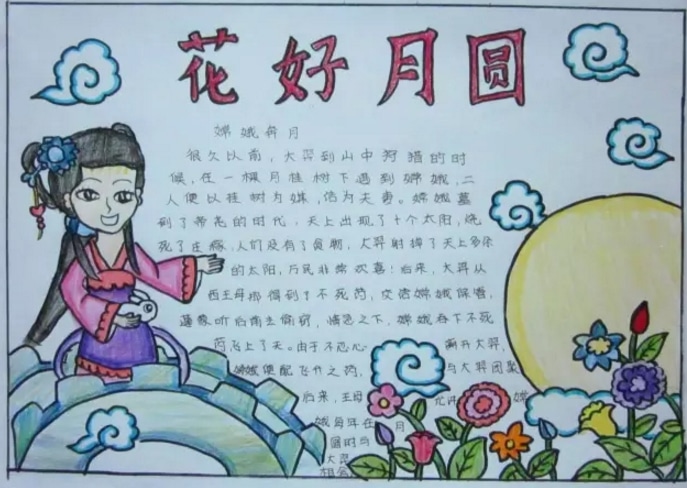 花好月圆
嫦娥奔月
很久以前，大羿到山中狩猎的时
候，在一棵月桂树下遇到嫦娥，二
人便以桂树为媒，结为夫妻。嫦娥
到了帝尧的时代，天上出现了十个太阳，烧
死了庄稼，人们没有了食物，大羿射掉了天上多余
的太阳，万民非常欢喜！后来，大羿从
西王母那得到了不死药，交给嫦娥保管，
逢蒙听后前去偷窃，情急之下，嫦娥吞下不死
药飞上了天。由于不忍心 离开大羿，
嫦娥 飞升之药， 与大羿团聚
后来，王母 允许 嫦
娥每年在 月
圆时与
大羿
相会